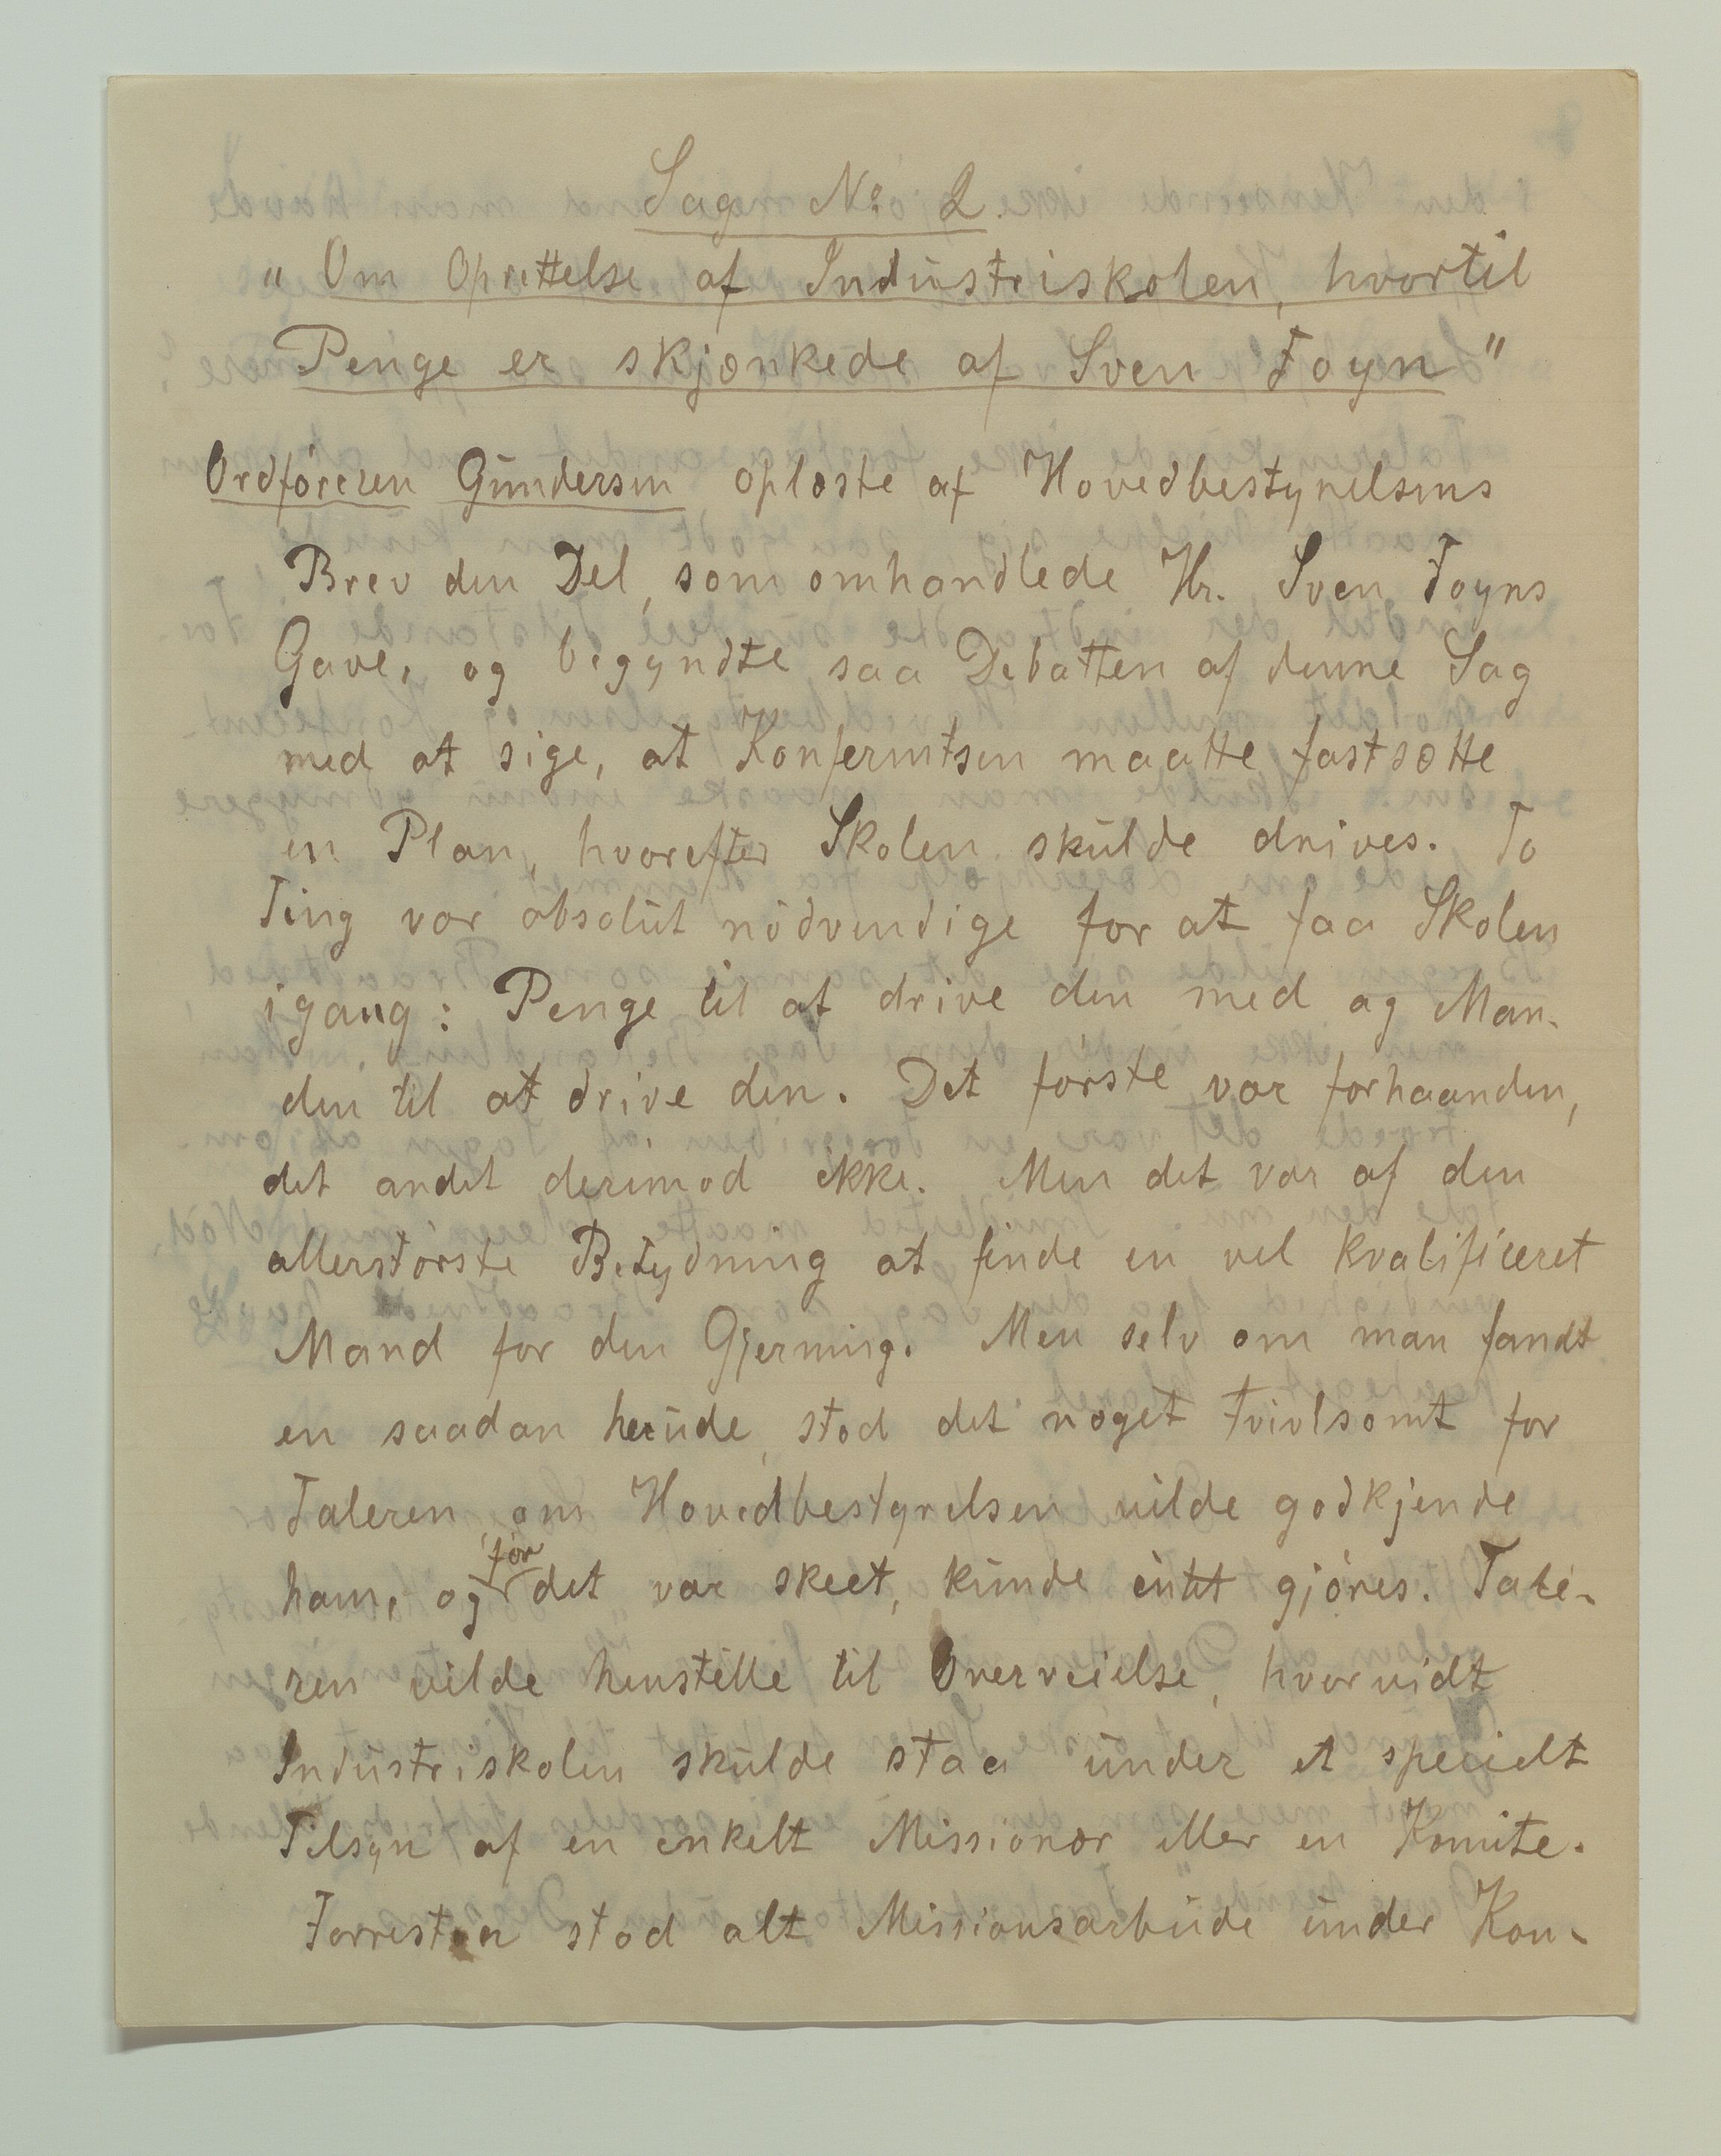 Sag No: 2.
"Om Oprettelse af Industriskolen, hvortil
Penge er skjænkede af Sven Foyn"
Ordføreren Gundersen oplæste af Hovedbestyrelsens
Brev den Del, som omhandlede Hr. Sven Foyns
Gave, og begyndte saa Debatten af denne Sag
med at sige, at Konferentsen maatte fastsætte
en Plan, hvorefter Skolen skulde drives. To
Ting var absolut nødvendige for at faa Skolen
igang: Penge til at drive den med og Man-
den til at drive den. Det første var forhaanden,
det andet derimod ikke. Men det var af den
allerstørste Betydning at finde en vel kvalificeret
Mand for den Gjerning. Men selv om man fandt
en saadan herude, stod det noget tvivlsomt for
Taleren, om Hovedbestyrelsen vilde godkjende
ham, og før det var skeet, kunde intet gjøres. Tale-
ren vilde henstille til Overveielse, hvorvidt
Industriskolen skulde staa under et specielt
Tilsyn af en enkelt Missionær eller en Komite.
Forresten stod alt Missionsarbeide under Kon-